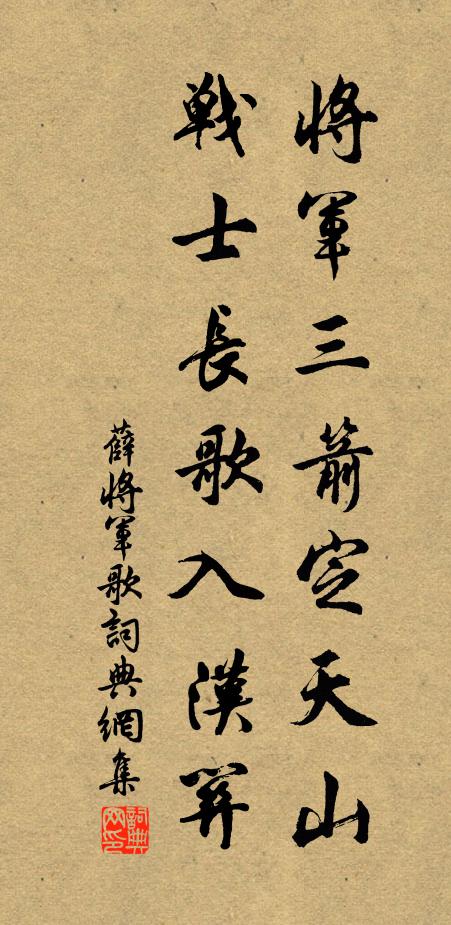 將軍三箭定天山
戰士長歌入漢關
薛將軍歌詞典網集
詞典网印